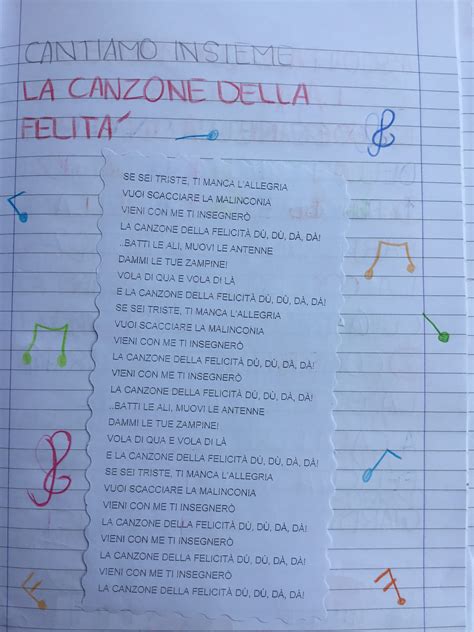 CANTIAMO INSIEME
LA CANZONE DELLA
FELITÀ
SE SEI TRISTE, TI MANCA L'ALLEGRIA
VUOI SCACCIARE LA MALINCONIA
VIENI CON ME TI INSEGNERÒ
LA CANZONE DELLA FELICITÀ DÙ, DÙ, DÀ, DÀ!
..BATTI LE ALI, MUOVI LE ANTENNE
DAMMI LE TUE ZAMPINE!
VOLA DI QUA E VOLA DI LÀ
E LA CANZONE DELLA FELICITÀ DÙ, DÙ, DÀ, DÀ!
SE SEI TRISTE, TI MANCA L'ALLEGRIA
VUOI SCACCIARE LA MALINCONIA
VIENI CON ME TI INSEGNERÒ
LA CANZONE DELLA FELICITÀ DÙ, DÙ, DÀ, DÀ!
VIENI CON ME TI INSEGNERÒ
LA CANZONE DELLA FELICITÀ DÙ, DÙ, DÀ, DÀ!
..BATTI LE ALI, MUOVI LE ANTENNE
DAMMI LE TUE ZAMPINE!
VOLA DI QUA E VOLA DI LÀ
E LA CANZONE DELLA FELICITÀ DÙ, DÙ, DÀ, DÀ!
SE SEI TRISTE, TI MANCA L'ALLEGRIA
VUOI SCACCIARE LA MALINCONIA
VIENI CON ME TI INSEGNERÒ
LA CANZONE DELLA FELICITÀ DÙ, DÙ, DÀ, DÀ!
VIENI CON ME TI INSEGNERÒ
LA CANZONE DELLA FELICITÀ DÙ, DÙ, DÀ, DÀ!
VIENI CON ME TI INSEGNERÒ
LA CANZONE DELLA FELICITÀ DÙ, DÙ, DÀ, DÀ!